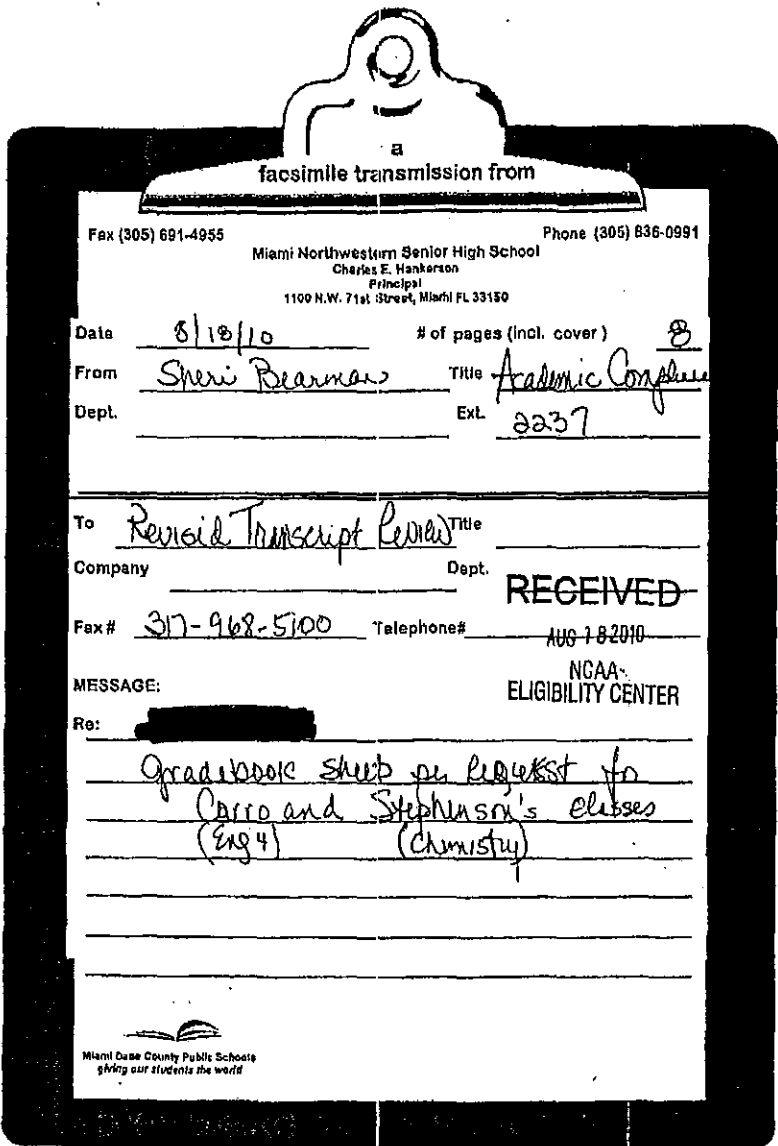 a
facsimile transmission from
Fax (305) 691-4955 Phone (305) 836-0991
Miami Northwestern Senior High School
Charles E. Hankerson
Principal
1100 N.W. 71st Street, Miami FL 33150
Date 8/18/10 # of pages (incl. cover) 8
From Sheri Bearman Title Academic Compliance
Dept. Ext. 2237
To Revisid Transcript Review Title
Company Dept.
RECEIVED
Fax # 317-968-5100 Telephone#
AUG 18 2010
NCAA
ELIGIBILITY CENTER
MESSAGE:
Re:
Gradebook sheets per request for
Carro and Stephenson's classes
(Eng 4) (Chemistry)
Miami Dade County Public Schools
giving our students the world